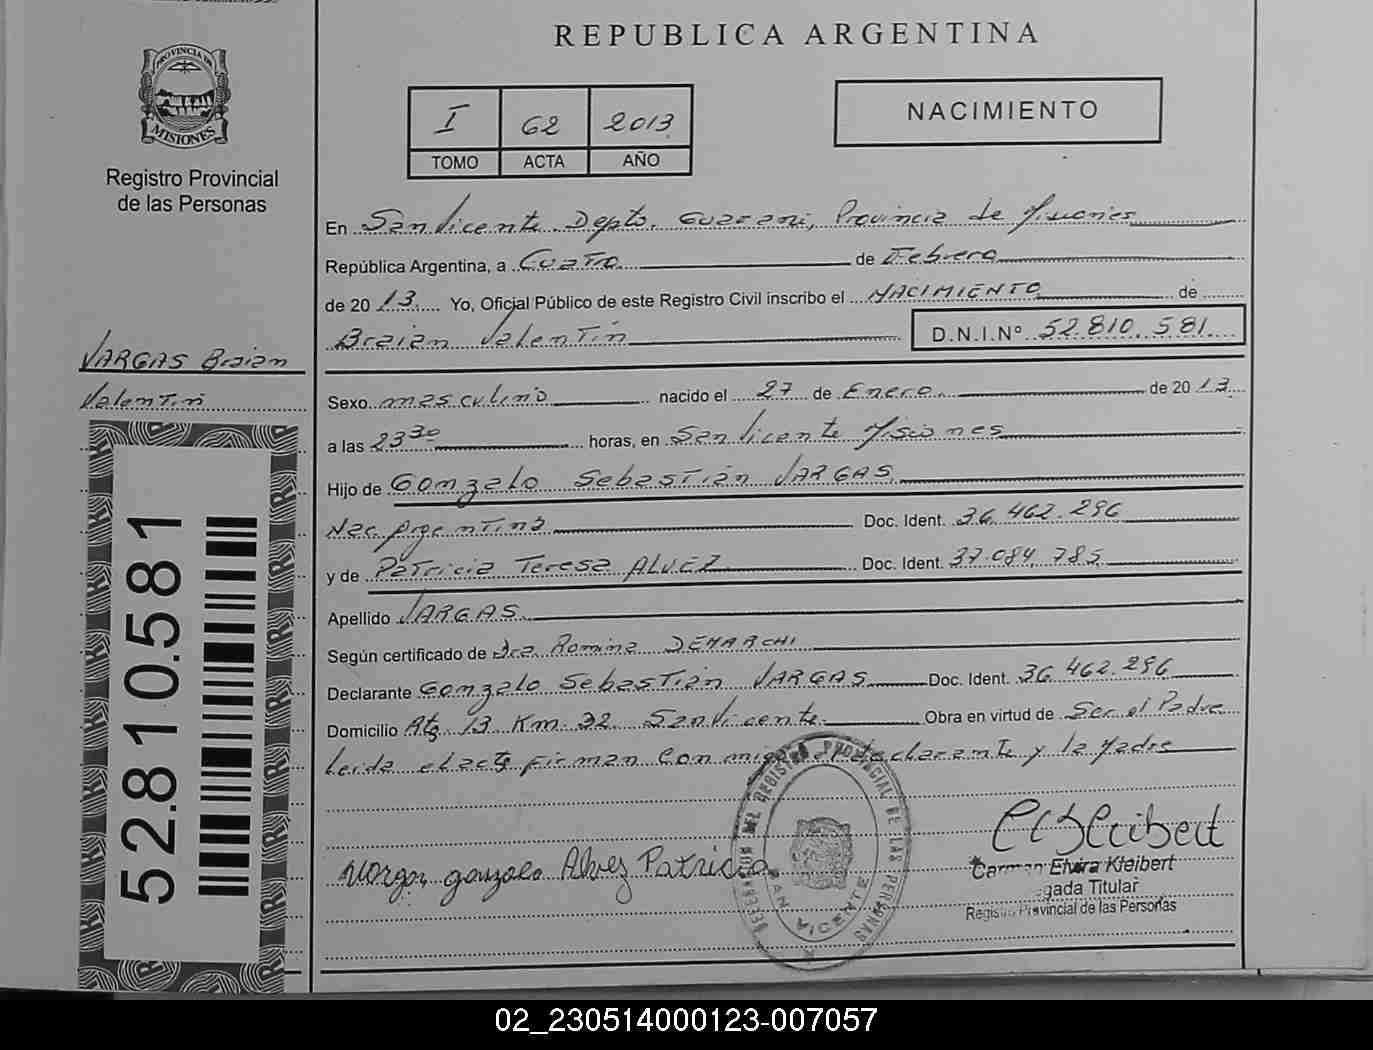 REPUBLICA ARGENTINA
PROVINCIA DE
MISIONES
Registro Provincial
de las Personas
I 62 2013
TOMO ACTA AÑO
NACIMIENTO
En San Vicente Depto. Guaraní, Provincia de Misiones
República Argentina, a Cuatro de Febrero
de 2013 Yo, Oficial Público de este Registro Civil inscribo el NACIMIENTO de
Braian Valentín D.N.I.Nº 52.810.581
VARGAS Braian
Valentín
Sexo masculino nacido el 27 de Enero de 2013
a las 23 30 horas, en San Vicente Misiones
Hijo de Gonzalo Sebastián VARGAS
Nac. Argentina Doc. Ident. 36.462.296
y de Patricia Teresa ALVEZ Doc. Ident. 37.084.785
Apellido VARGAS
Según certificado de Dra Romina DEMARCHI
Declarante Gonzalo Sebastián VARGAS Doc. Ident. 36.462.296
Domicilio Ktº 13 Km. 32 San Vicente Obra en virtud de Ser el Padre
Leída el acta firman con migo el declarante y la Madre
Vargas gonzalo Alvez Patricia
DEL REGISTRO PROVINCIAL DE LAS PERSONAS
SAN VICENTE
Kleibert
Carmen Elvira Kleibert
gada Titular
Registro Provincial de las Personas
52.810.581
02_230514000123-007057